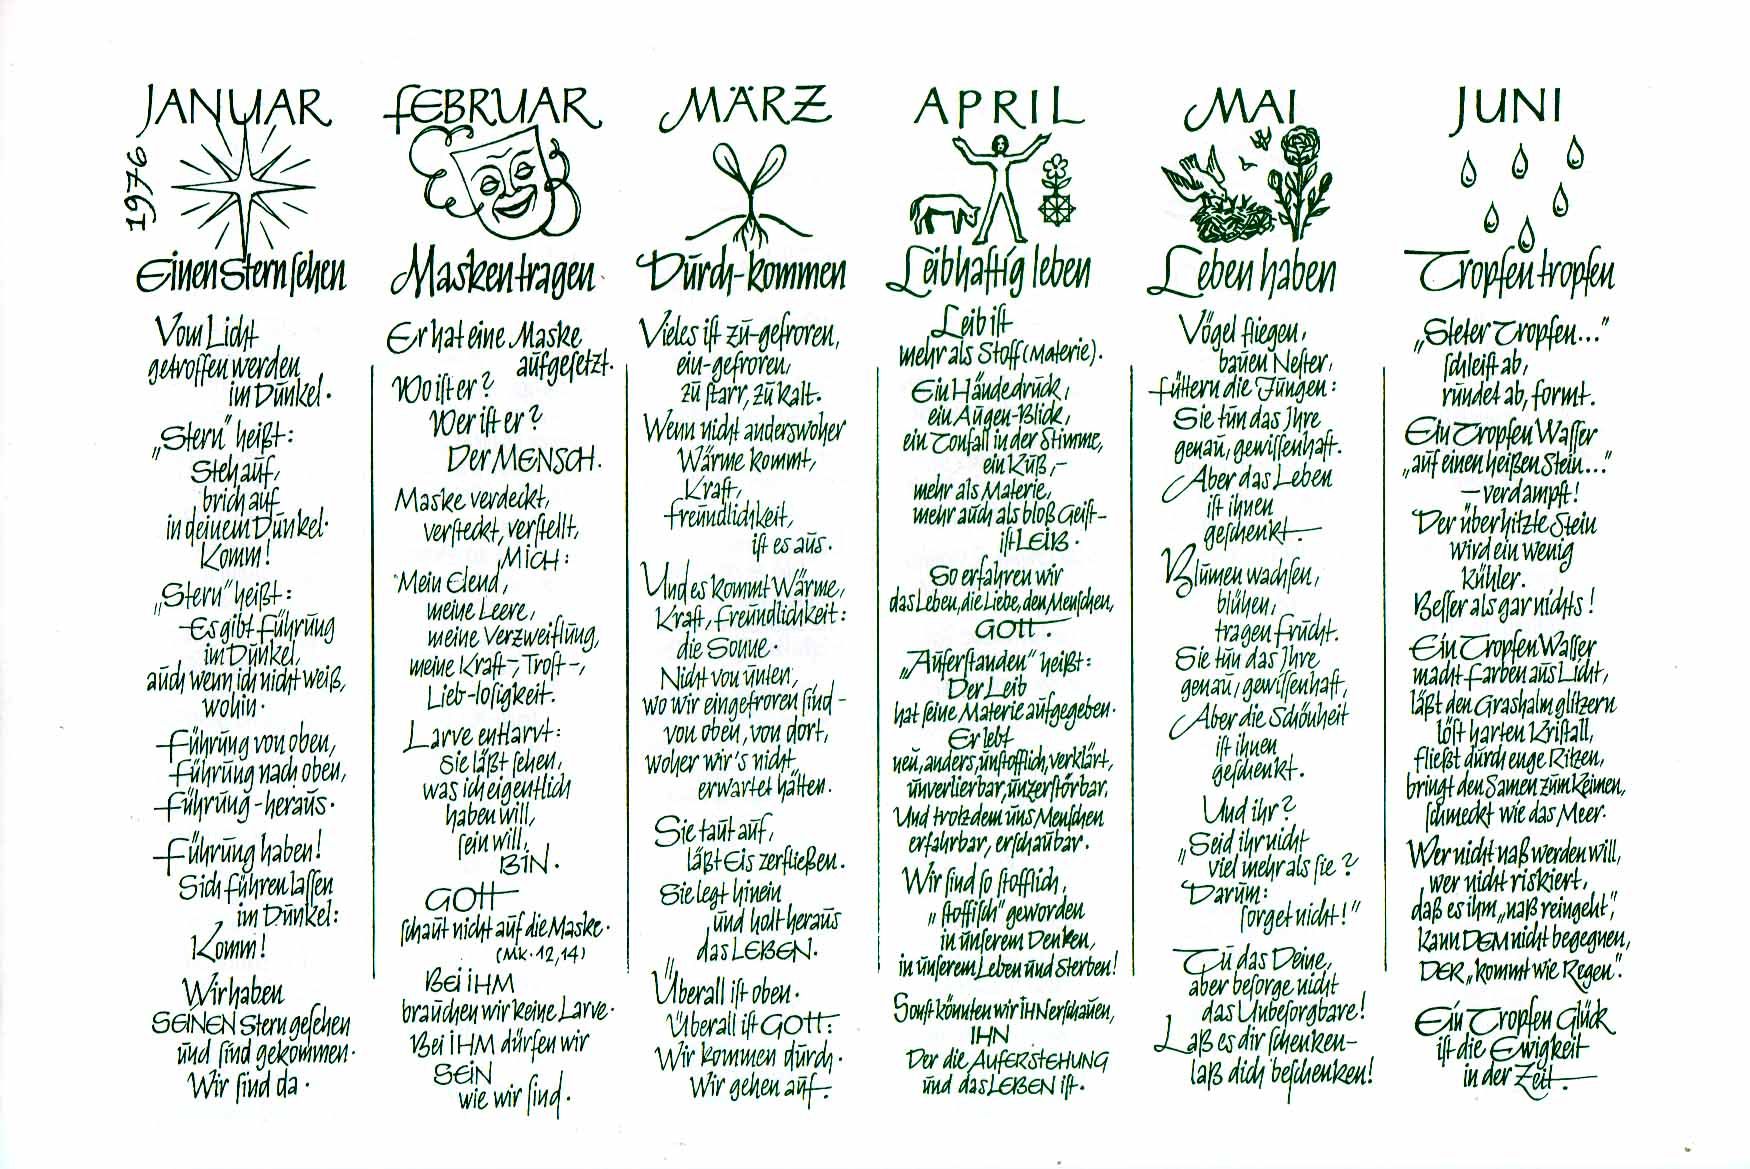 1976
JANUAR
Einen Stern sehen
Vom Licht
getroffen werden
im Dunkel.
„Stern" heißt:
Steh auf,
brich auf
in deinem Dunkel.
Komm!
„Stern" heißt:
Es gibt Führung
im Dunkel,
auch wenn ich nicht weiß,
wohin.
Führung von oben,
Führung nach oben,
Führung-heraus.
Führung haben!
Sich führen lassen
im Dunkel:
Komm!
Wir haben
SEINEN Stern gesehen
und sind gekommen.
Wir sind da.
FEBRUAR
Masken tragen.
Er hat eine Maske
aufgesetzt.
Wo ist er?
Wer ist er?
Der MENSCH.
Maske verdeckt,
versteckt, verstellt,
MICH:
Mein Elend,
meine Leere,
meine Verzweiflung,
meine Kraft-, Trost-,
Lieb-losigkeit.
Larve entlarvt:
Sie läßt sehen,
was ich eigentlich
haben will,
sein will,
BIN.
GOTT
schaut nicht auf die Maske.
(Mk. 12,14)
Bei IHM
brauchen wir keine Larve.
Bei IHM dürfen wir
SEIN
wie wir sind.
MÄRZ
Durch-kommen
Vieles ist zu-gefroren,
ein-gefroren,
zu starr, zu kalt.
Wenn nicht anderswoher
Wärme kommt,
Kraft,
Freundlichkeit,
ist es aus.
Und es kommt Wärme,
Kraft, Freundlichkeit:
die Sonne.
Nicht von unten,
wo wir eingefroren sind -
von oben, von dort,
woher wir's nicht
erwartet hätten.
Sie taut auf,
läßt Eis zerfließen.
Sie legt hinein
und holt heraus
das LEBEN.
Überall ist oben.
Überall ist GOTT:
Wir kommen durch.
Wir gehen auf.
APRIL
Leibhaftig leben
Leib ist
mehr als Stoff (Materie).
Ein Händedruck,
ein Augen-Blick,
ein Tonfall in der Stimme,
ein Kuß,-
mehr als Materie,
mehr auch als bloß Geist-
ist LEIB.
So erfahren wir
das Leben, die Liebe, den Menschen,
GOTT.
„Auferstanden" heißt:
Der Leib
hat seine Materie aufgegeben.
Er lebt
neu, anders, unstofflich, verklärt,
unverlierbar, unzerstörbar.
Und trotzdem uns Menschen
erfahrbar, erschaubar.
Wir sind so stofflich,
„stoffisch" geworden
in unserem Denken,
in unserem Leben und Sterben!
Sonst könnten wir IHN erschauen,
IHN
Der die AUFERSTEHUNG
und das LEBEN ist.
MAI
Leben haben
Vögel fliegen,
bauen Nester,
füttern die Jungen:
Sie tun das Ihre
genau, gewissenhaft.
Aber das Leben
ist ihnen
geschenkt.
Blumen wachsen,
blühen,
tragen Frucht.
Sie tun das Ihre
genau, gewissenhaft,
Aber die Schönheit
ist ihnen
geschenkt.
Und ihr?
„Seid ihr nicht
viel mehr als sie?
Darum:
sorget nicht!"
Tu das Deine,
aber besorge nicht
das Unbesorgbare!
Laß es dir schenken-
laß dich beschenken!
JUNI
Tropfen tropfen
„Steter Tropfen..."
schleift ab,
rundet ab, formt.
Ein Tropfen Wasser
„auf einen heißen Stein..."
- verdampft!
Der überhitzte Stein
wird ein wenig
kühler.
Besser als gar nichts!
Ein Tropfen Wasser
macht Farben aus Licht,
läßt den Grashalm glitzern
löst harten Kristall,
fließt durch enge Ritzen,
bringt den Samen zum Keimen,
schmeckt wie das Meer.
Wer nicht naß werden will,
wer nicht riskiert,
daß es ihm „naß reingeht",
kann DEM nicht begegnen,
DER „kommt wie Regen".
Ein Tropfen Glück
ist die Ewigkeit
in der Zeit.